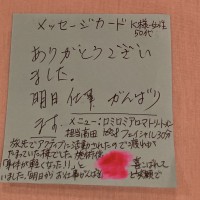 メッセージカード K様 女性
50代
ありがとうござい
ました。
明日 仕事 がんばり
ます。
メニュー:ロミロミアロマトリートメント
担当 有田 フェイシャル30分
旅先でアクティブに活動されたので疲れが
たまっていた様でした。施術後
「身体が軽くなった!」と 喜こばれて
いました。「明日からお仕事がんばる」と笑顔で